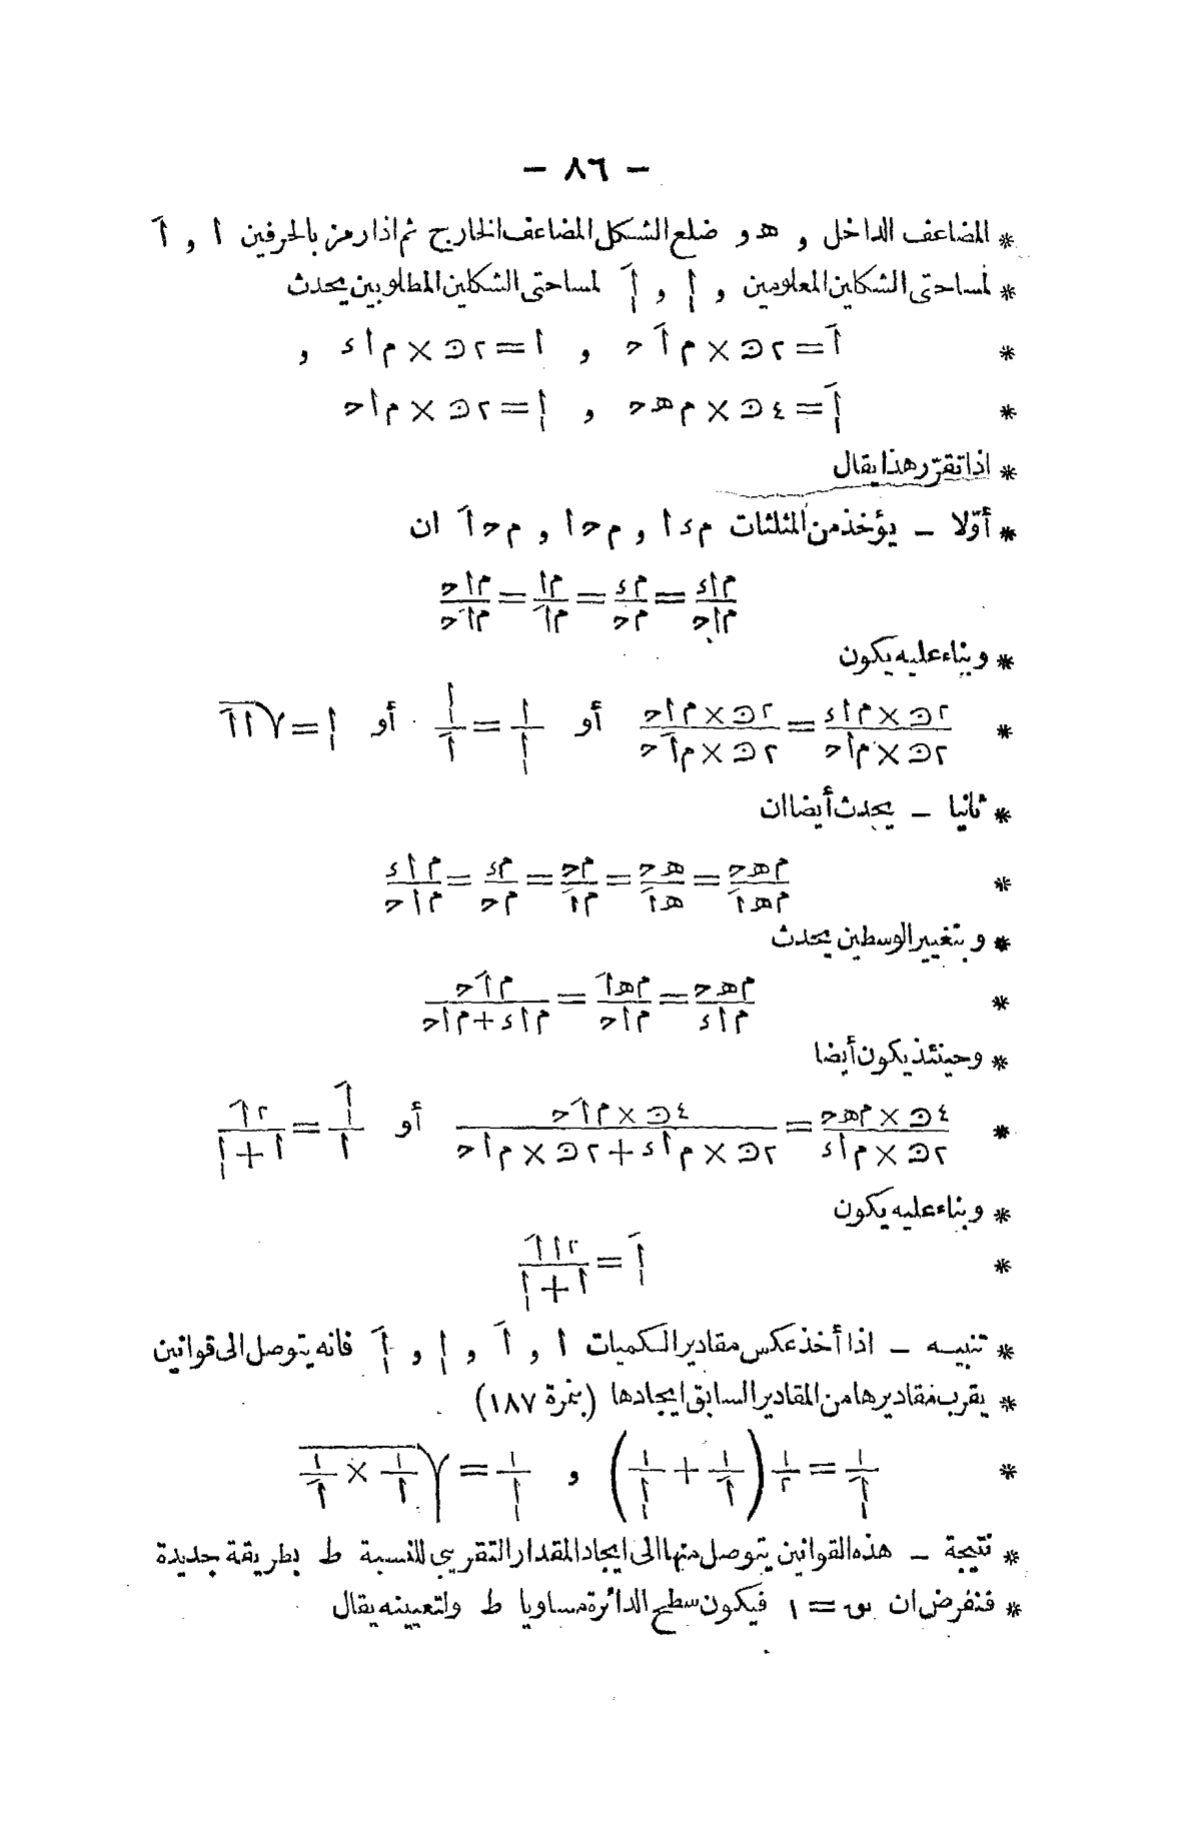 — ٨٦ —
* المضاعف الداخل و هـ و ضلع الشكل المضاعف الخارج ثم اذا رمز بالحرفين ا و اَ
* لمساحتى الشكلين المعلومين و اٖ و اَٖ لمساحتى الشكلين المطلوبين يحدث
* اَ = ٢ ⊃ × م اَ ح و ا = ٢ ⊃ × م ا ء و
* اَٖ = ٤ ⊃ × م هـ ح و اٖ = ٢ ⊃ × م ا ح
* اذا تقرّر هذا يقال
* أوّلا — يؤخذ من المثلثات م ء ا و م ح ا و م ح اَ ان
م ا ء / م ا ح = م ء / م ح = م ا / م اَ = م ا ح / م اَ ح
* وبناء عليه يكون
* ٢ ⊃ × م ا ء / ٢ ⊃ × م ا ح = ٢ ⊃ × م ا ح / ٢ ⊃ × م اَ ح أو ا / اٖ = اٖ / اَ أو اٖ = √ا اَ
* ثانيا — يحدث أيضا ان
* م هـ ح / م هـ اَ = هـ ح / هـ اَ = م ح / م اَ = م ء / م ح = م ا ء / م ا ح
* وبتغيير الوسطين يحدث
* م هـ ح / م ا ء = م هـ اَ / م ا ح = م اَ ح / م ا ء + م ا ح
* وحينئذ يكون أيضا
* ٤ ⊃ × م هـ ح / ٢ ⊃ × م ا ء = ٤ ⊃ × م اَ ح / ٢ ⊃ × م ا ء + ٢ ⊃ × م ا ح أو اَٖ / ا = ٢ اَ / ا + اٖ
* وبناء عليه يكون
* اَٖ = ٢ ا اَ / ا + اٖ
* تنبيه — اذا أخذ عكس مقادير الكميات ا و اَ و اٖ و اَٖ فانه يتوصل الى قوانين
* يقرب مقاديرها من المقادير السابق ايجادها (بنمرة ١٨٧)
* ١ / اَٖ = ١ / ٢ (١ / اَ + ١ / اٖ) و ١ / اٖ = √١ / ا × ١ / اَ
* نتيجة — هذه القوانين يتوصل منها الى ايجاد المقدار التقريبى للنسبة ط بطريقة جديدة
* فنفرض ان نق = ١ فيكون سطح الدائرة مساويا ط ولتعيينه يقال